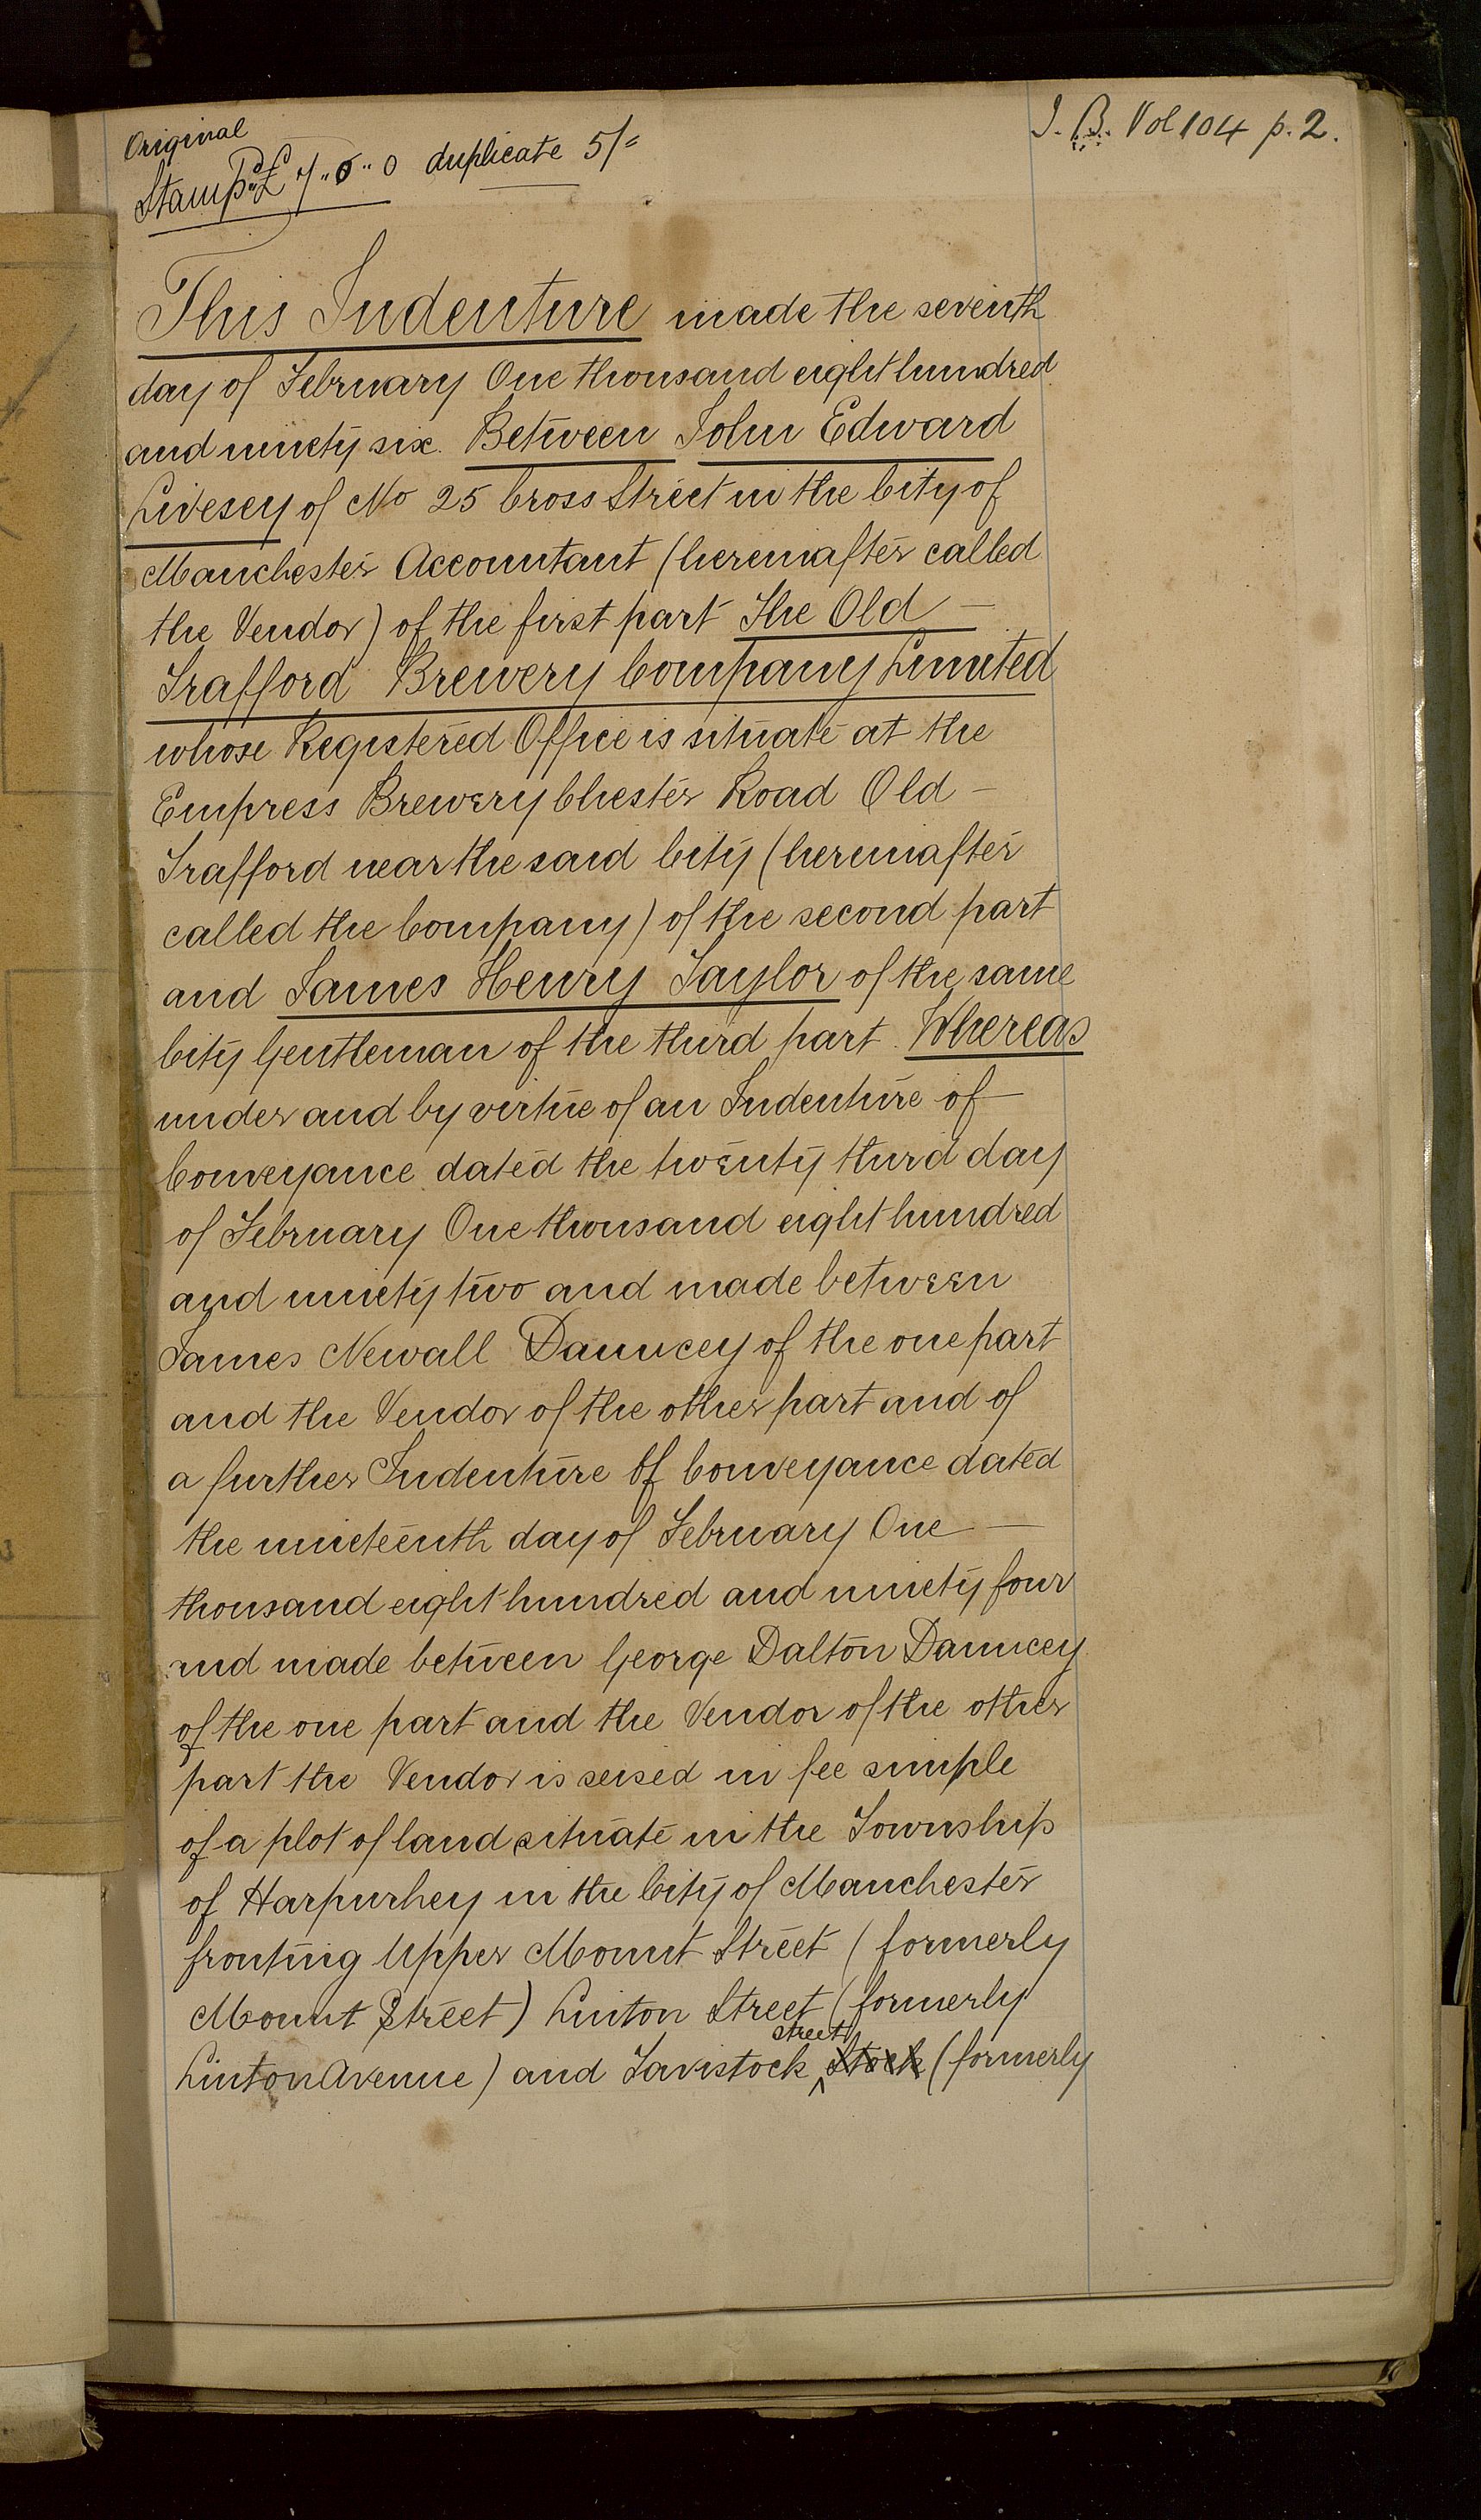 Original
Stamp £7„5„0 duplicate 5/=
J. B. Vol 104 p. 2.
This Indenture made the seventh
day of February One thousand eight hundred
and ninety six. Between John Edward
Livesey of No 25 Cross Street in the City of
Manchester Accountant (hereinafter called
the Vendor) of the first part The Old —
Trafford Brewery Company Limited
whose Registered Office is situate at the
Empress Brewery Chester Road Old —
Trafford near the said City (hereinafter
called the Company) of the second part
and James Henry Taylor of the same
City Gentleman of the third part. Whereas
under and by virtue of an Indenture of
Conveyance dated the twenty third day
of February One thousand eight hundred
and ninety two and made between
James Newall Dauncey of the one part
and the Vendor of the other part and of
a further Indenture Of Conveyance dated
the nineteenth day of February One —
thousand eight hundred and ninety four
and made between George Dalton Dauncey
of the one part and the Vendor of the other
part the Vendor is seised in fee simple
of a plot of land situate in the Township
of Harpurhey in the City of Manchester
fronting Upper Mount Street (formerly
Mount Street) Linton Street (formerly
street
Linton Avenue) and Tavistock stock (formerly